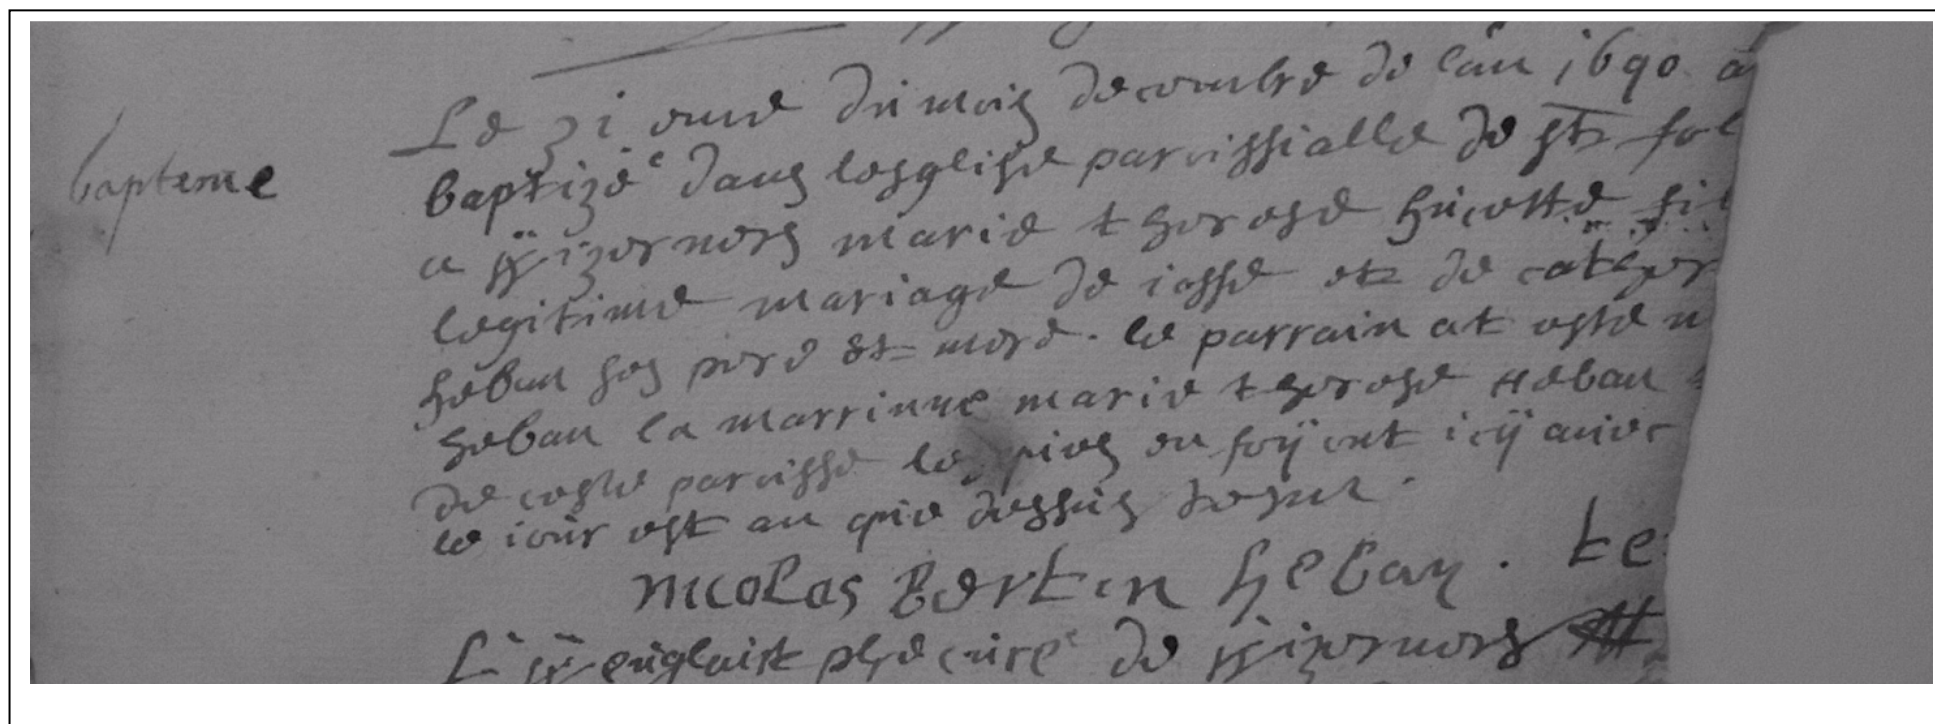 bapteme
Le 31 eme du mois decembre de lan 1690 a
baptizé dans lesglise paroissialle de st fol
a Wizernes marie therese hucotte fil
legitime mariage de iosse et de cather
heban ses pere et mere. le parrain at este n
heban la marrinne marie therese Heban
de ceste paroisse en foy ont icy avec
le iour est an que dessus
nicolas Bertin heban. te
curé de Wizernes